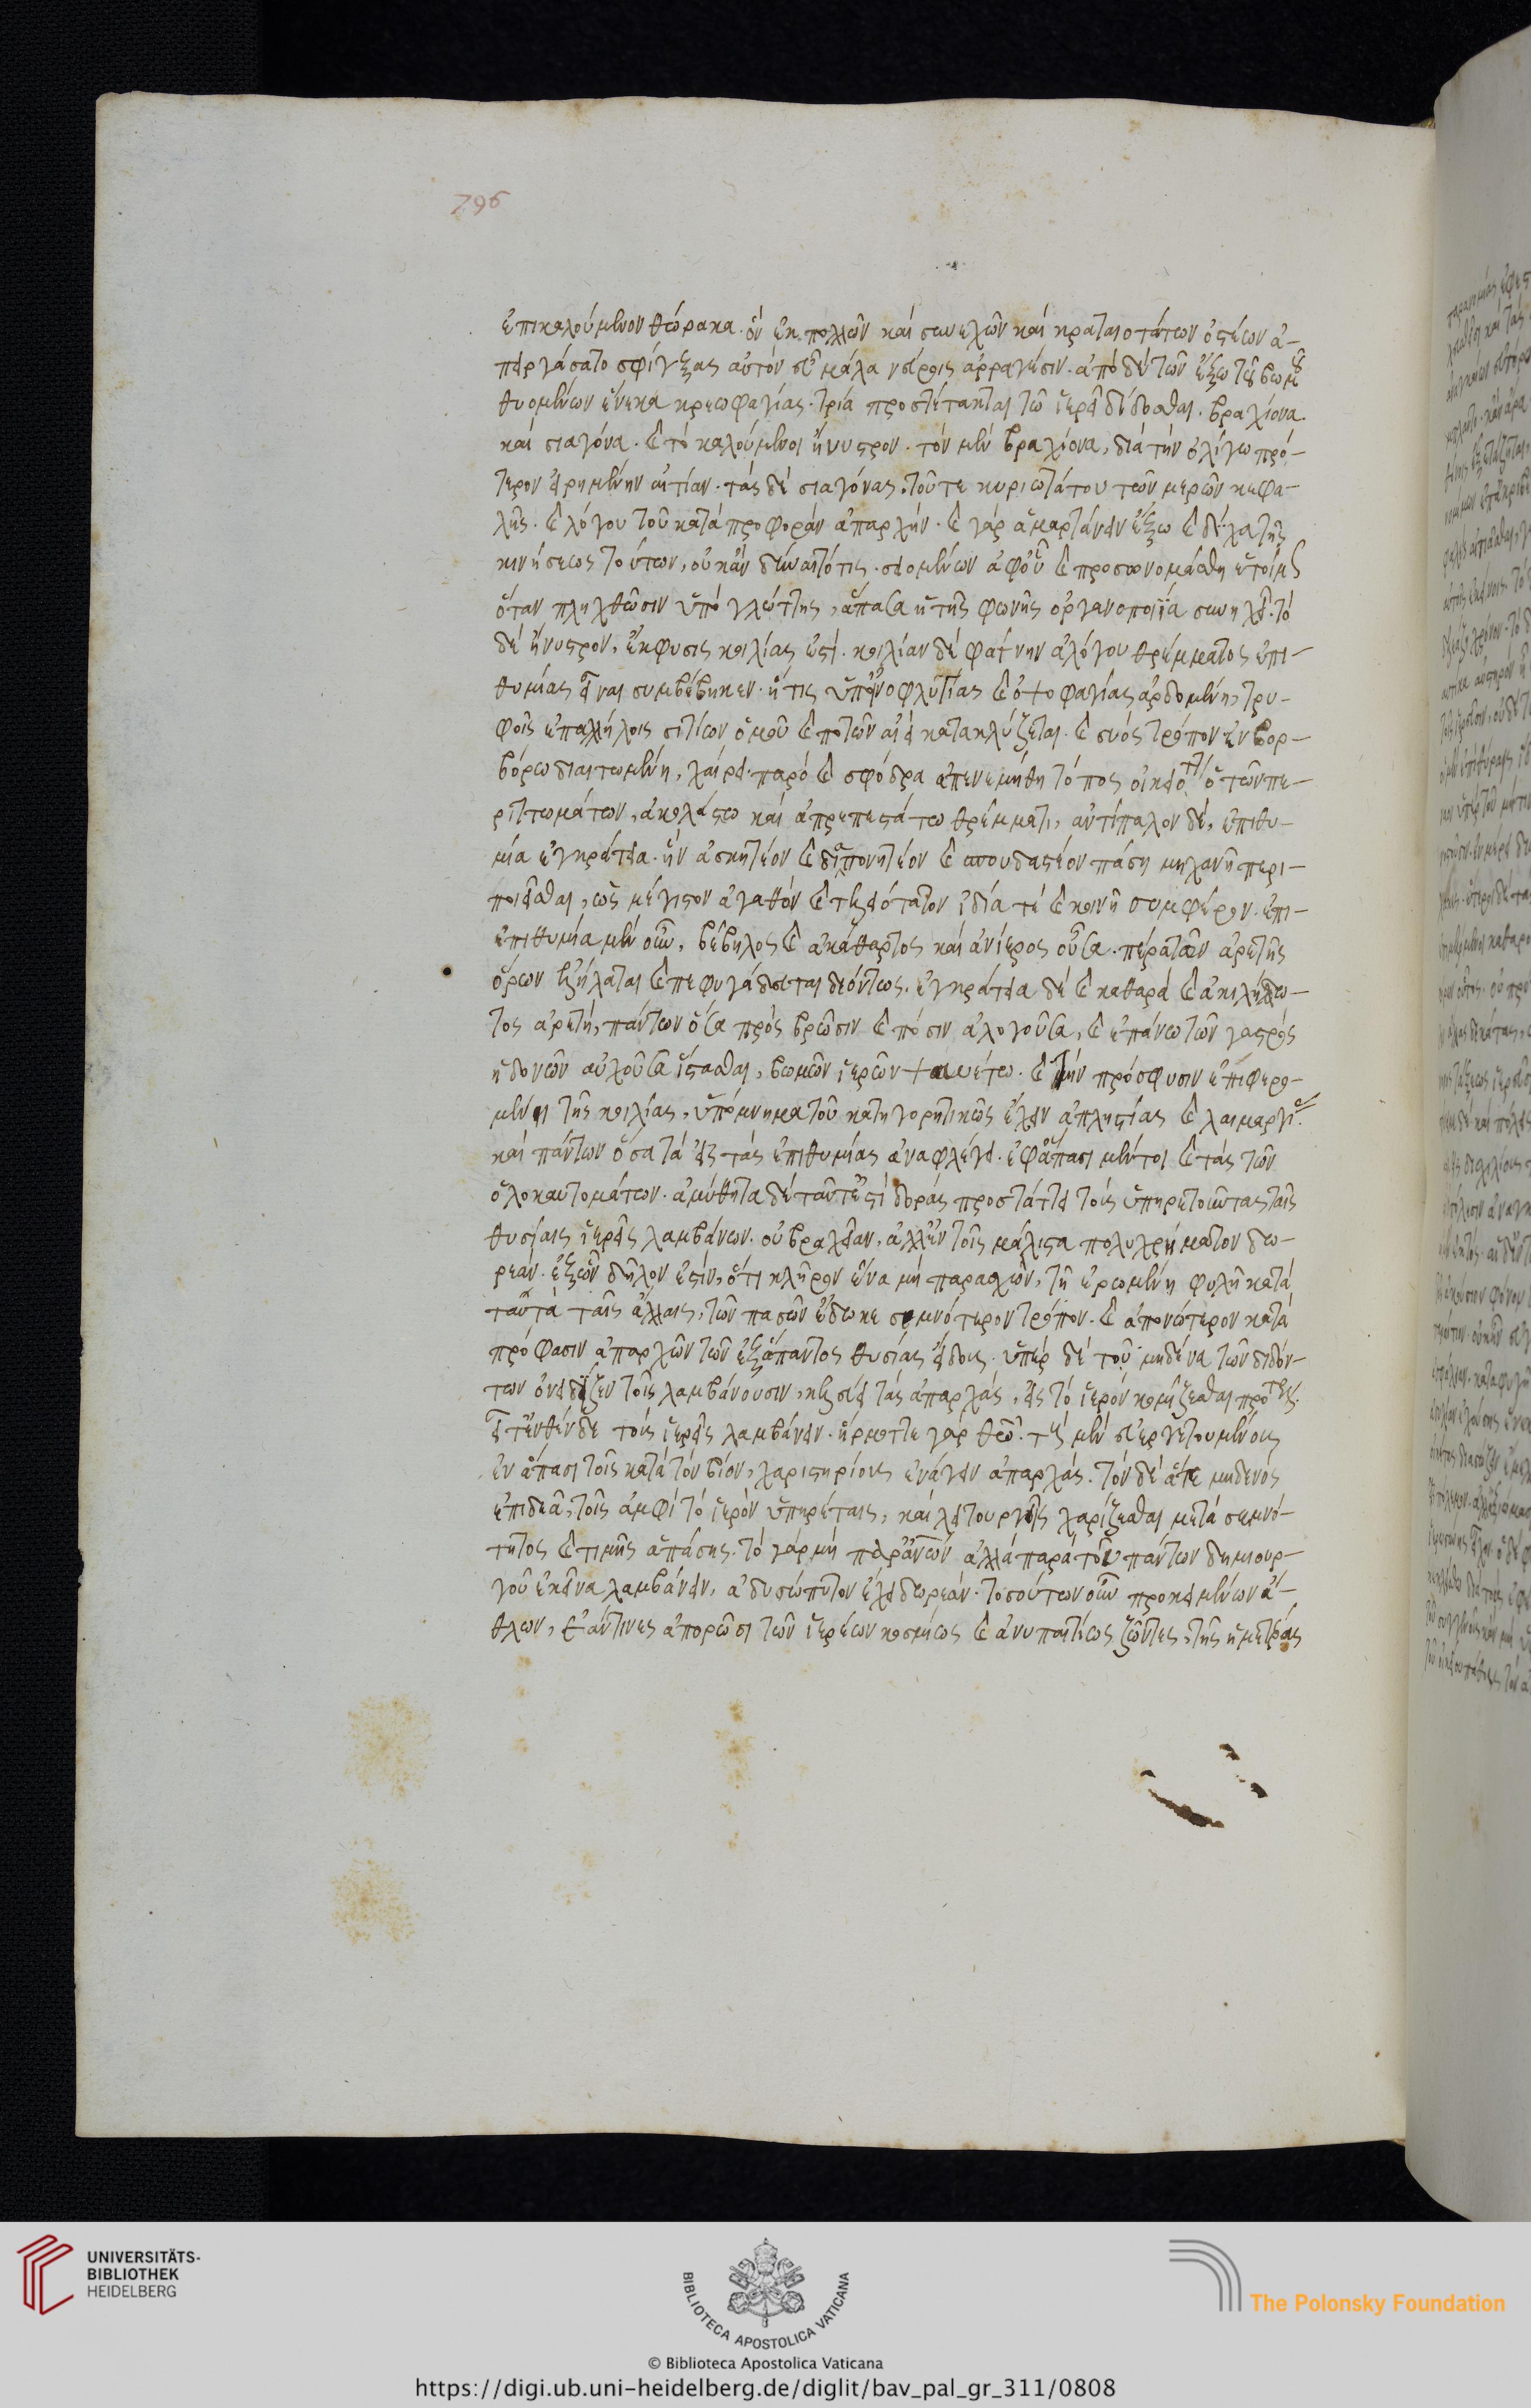 796
ἐπικαλούμενον θώρακα. ὃν ἐκ πολλῶν καὶ συνεχῶν καὶ κραταιοτάτων ὀστέων ἀ-
πειργάσατο σφίγξας αὐτὸν εὖ μάλα νεύροις ἀρραγέσιν. ἀπὸ δὲ τῶν ἔξω τοῦ βωμοῦ
θυομένων ἕνεκα κρεωφαγίας. τρία προστέτακται τῶ ἱερεῖ δίδοσθαι. βραχίονα.
καὶ σιαγόνα. καὶ τὸ καλούμενον ἤνυστρον. τὸν μὲν βραχίονα, διὰ τὴν ὀλίγω πρό-
τερον εἰρημένην αἰτίαν. τὰς δὲ σιαγόνας, τοῦ τε κυριωτάτου τῶν μερῶν κεφα-
λῆς. καὶ λόγου τοῦ κατὰ προφορὰν ἀπαρχήν. καὶ γὰρ ἁμαρτάνειν ἔξω καὶ δίχα τῆς
κινήσεως τούτων, οὐκ ἂν δύναιτό τις. σειομένων ἀφ' οὗ καὶ προσωνομάσθη ἑτοίμως
ὅταν πληχθῶσιν ὑπὸ γλώττης, ἅπασα ἡ τῆς φωνῆς ὀργανοποιΐα συνηχεῖ. τὸ
δὲ ἤνυστρον, ἔκφυσις κοιλίας ἐστί. κοιλίαν δὲ φάτνην ἀλόγου θρέμματος ἐπι-
θυμίας εἶναι συμβέβηκεν. ἥτις ὑπ' οἰνοφλυγίας καὶ ὀψοφαγίας ἀρδομένη, τρο-
φαῖς ἐπαλλήλοις σιτίων ὁμοῦ καὶ ποτῶν αἰεὶ κατακλύζεται. καὶ συὸς τρόπον ἐν βορ-
βόρω διαιτωμένη, χαίρει. παρὸ καὶ σφόδρα ἀπενεμήθη τόπος οἰκειότατος ὁ τῶν πε-
ριττωμάτων, ἀκολάστω καὶ ἀπρεπεστάτω θρέμματι, ἀντίπαλον δὲ, ἐπιθυ-
μία ἐγκράτεια. ἣν ἀσκητέον καὶ διαπονητέον καὶ σπουδαστέον πάση μηχανῆ περι-
ποιεῖσθαι, ὡς μέγιστον ἀγαθὸν καὶ τελειότατον ἰδία τὲ καὶ κοινῆ συμφέρον. ἐπι-
ἐπιθυμία μὲν οὖν, βέβηλος καὶ ἀκάθαρτος καὶ ἀνίερος οὖσα. πέρα τῶν ἀρετῆς
ὅρων ἐξήλαται καὶ πεφυγάδευται δεόντως. ἐγκράτεια δὲ καὶ καθαρὰ καὶ ἀκηλίδω-
τος ἀρετὴ, πάντων ὅσα πρὸς βρῶσιν καὶ πόσιν ἀλογοῦσα, καὶ ἐπάνω τῶν γαστρὸς
ἡδονῶν αὐχοῦσα ἵστασθαι, βωμῶν ἱερῶν ψαυέτω. καὶ τὴν πρόσφυσιν ἐπιφερο-
μένη τῆς κοιλίας, ὑπόμνημα τοῦ κατηγορητικῶς ἔχειν ἀπληστίας καὶ λαιμαργίας.
καὶ πάντων ὅσα τὰ εἰς τὰς ἐπιθυμίας ἀναφλέγει. ἐφ' ἅπασι μέντοι καὶ τὰς τῶν
ὁλοκαυτομάτων. ἀμύθητα δὲ ταῦτ' ἐστὶ δορὰς προστάττει τοὺς ὑπηρετοῦντας ταῖς
θυσίαις ἱερεῖς λαμβάνων. οὐ βραχεῖαν, ἀλλ' ἐν τοῖς μάλιστα πολυχρήματον δω-
ρεάν. ἐξ ὧν δῆλον ἐστὶν, ὅτι κλῆρον ἕνα μὴ παρασχὼν, τῆ ἱερωμένη φυλῆ κατὰ
ταυτὰ ταῖς ἄλλαις, τῶν πασῶν ἔδωκε σεμνότερον τρόπον. καὶ ἁγιώτερον κατὰ
πρόφασιν ἀπαρχῶν τῶν ἐξ ἅπαντος θυσίας εἴδους. ὑπὲρ δὲ τοῦ μηδένα τῶν διδόν-
των ὀνειδίζειν τοῖς λαμβάνουσιν, κελεύει τὰς ἀπαρχὰς, εἰς τὸ ἱερὸν κομίζεσθαι πρότερον.
εἶτ' ἐνθένδε τοὺς ἱερεῖς λαμβάνειν. ἥρμοττε γὰρ θεῶ. τοὺς μὲν εὐεργετουμένους
ἐν ἅπασι τοῖς κατὰ τὸν βίον, χαριστηρίους ἐνάγειν ἀπαρχάς. τὸν δὲ ἅτε μηδενὸς
ἐπιδεᾶ, τοῖς ἀμφὶ τὸ ἱερὸν ὑπηρέταις, καὶ λειτουργοῖς χαρίζεσθαι μετὰ σεμνό-
τητος καὶ τιμῆς ἁπάσης. τὸ γὰρ μὴ παρ' ἀνθρώπων ἀλλὰ παρὰ τοῦ πάντων δημιουρ-
γοῦ ἐκεῖνα λαμβάνειν, ἀδυσώπητον ἔχει δωρεάν. τοσούτων οὖν προκειμένων ἄ-
θλων, ἐάν τινες ἀπορῶσι τῶν ἱερέων κοσμίως καὶ ἀνυπαιτίως ζῶντες, τῆς ἡμετέρας
UNIVERSITÄTS-
BIBLIOTHEK
HEIDELBERG
BIBLIOTECA APOSTOLICA VATICANA
The Polonsky Foundation
© Biblioteca Apostolica Vaticana
https://digi.ub.uni-heidelberg.de/diglit/bav_pal_gr_311/0808